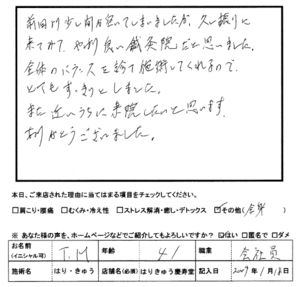 前回より少し間が空いてしまいましたが、久し振りに
来てみて、やはり良い鍼灸院だと思いました。
全体のバランスを診て施術してくれるので、
とてもすっきりとしました。
また近いうちに来院したいと思います。
ありがとうございました。
本日、ご来店された理由に当てはまる項目をチェックしてください。
□肩こり・腰痛 □むくみ・冷え性 □ストレス解消・癒し・デトックス ☑その他(全身)
※ あなた様の声を、ホームページなどでご紹介してもよろしいですか? ☑はい □匿名で □ダメ
お名前(イニシャル可) T.M 年齢 41 職業 会社員
施術名 はり・きゅう 店舗名(必須) はりきゅう慶寿堂 記入日 2009年1月18日